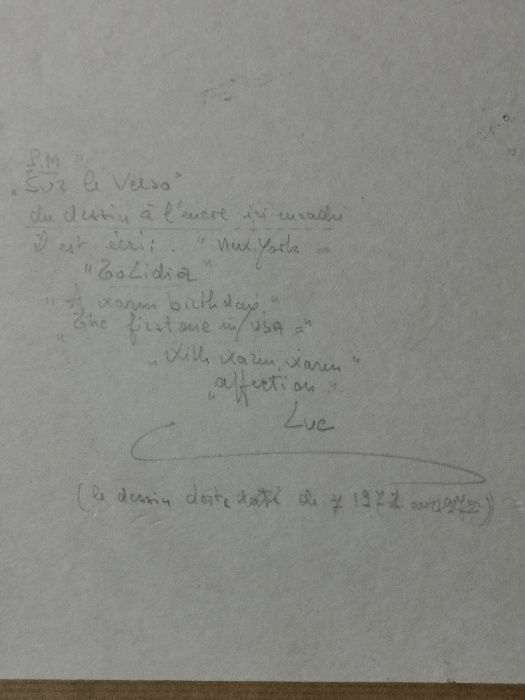 P.M
"Sur le Verso"
du dessin à l'encre ici encadré
il est écri: . " New York =
"To Lidia"
"A warm birthday."
"The first one in USA ="
" With warm, warm "
"affection"
Luc
(le dessin doite daté de 1971 ou 1972)